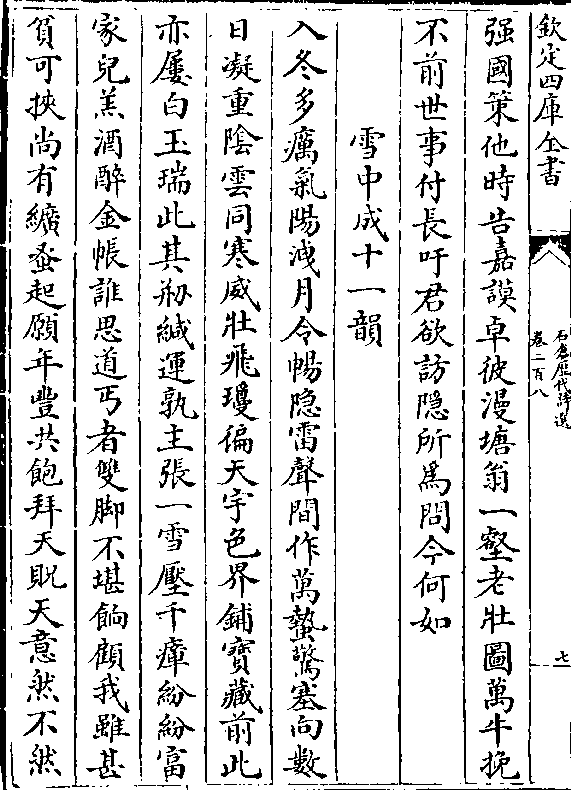 欽定四庫全書
石倉歷代詩選
卷二百八
七
强國䇿他時告嘉謨卓彼漫塘翁一壑老壯圖萬牛挽
不前世事付長吁君欲訪隠所為問今何如
雪中成十一韻
入冬多癘氣陽洩月令暢隠雷聲間作萬蟄驚塞向數
日凝重隂雲同寒威壯飛瓊徧天宇色界鋪寶藏前此
亦屢白玉瑞此其刱緘運孰主張一雪壓千瘴紛紛富
家兒羔酒醉金帳誰思道丐者雙脚不堪餉顧我雖甚
貧可挾尚有纊蚤起願年豐共飽拜天貺天意然不然